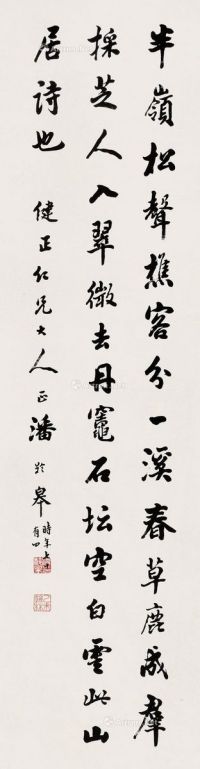 半嶺松聲樵客分一溪春草鹿成群
採芝人入翠微去丹竈石坛空白雲此山
居詩也 健正仁兄大人正 潘於皋
時年七十
有四